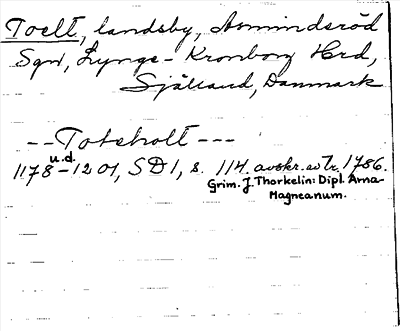 Toelt, landsby, Asmindsröd
Sgn, Lynge-Kronborg Hrd,
Själland, Danmark
-- Totsholt ---
u.d.
1178-1201, SD1, s. 114. avskr. av Tr. 1786.
Grim. J. Thorkelin: Dipl. Arna-
Magneanum.